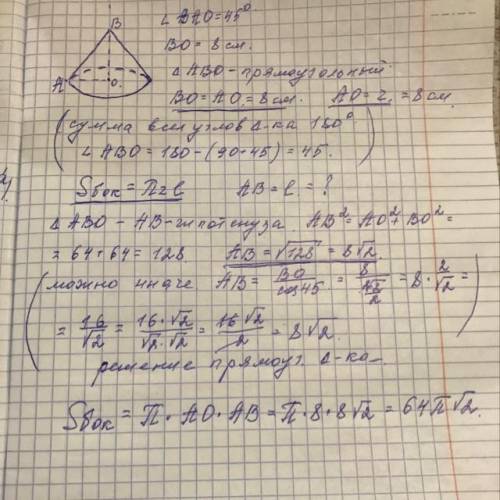 B
A
O
∠BAO=45°
BO = 8 см.
Δ ABO - прямоугольный.
BO = AO = 8 см.   AO = r = 8 см
(сумма всех углов Δ-ка 180°
∠ ABO = 180 - (90+45) = 45.)
Sбок = П r l   AB = l = ?
Δ ABO - AB - гипотенуза. AB² = AO² + BO² =
= 64 + 64 = 128.   AB = √128 = 8√2
(можно иначе AB = BO/cos45 = 8/(√2/2) = 8 · 2/√2 =
= 16/√2 = 16·√2/√2·√2 = 16√2/2 = 8√2.
решение прямоуг. Δ-ка)
Sбок = П · AO · AB = П · 8 · 8√2 = 64П√2.